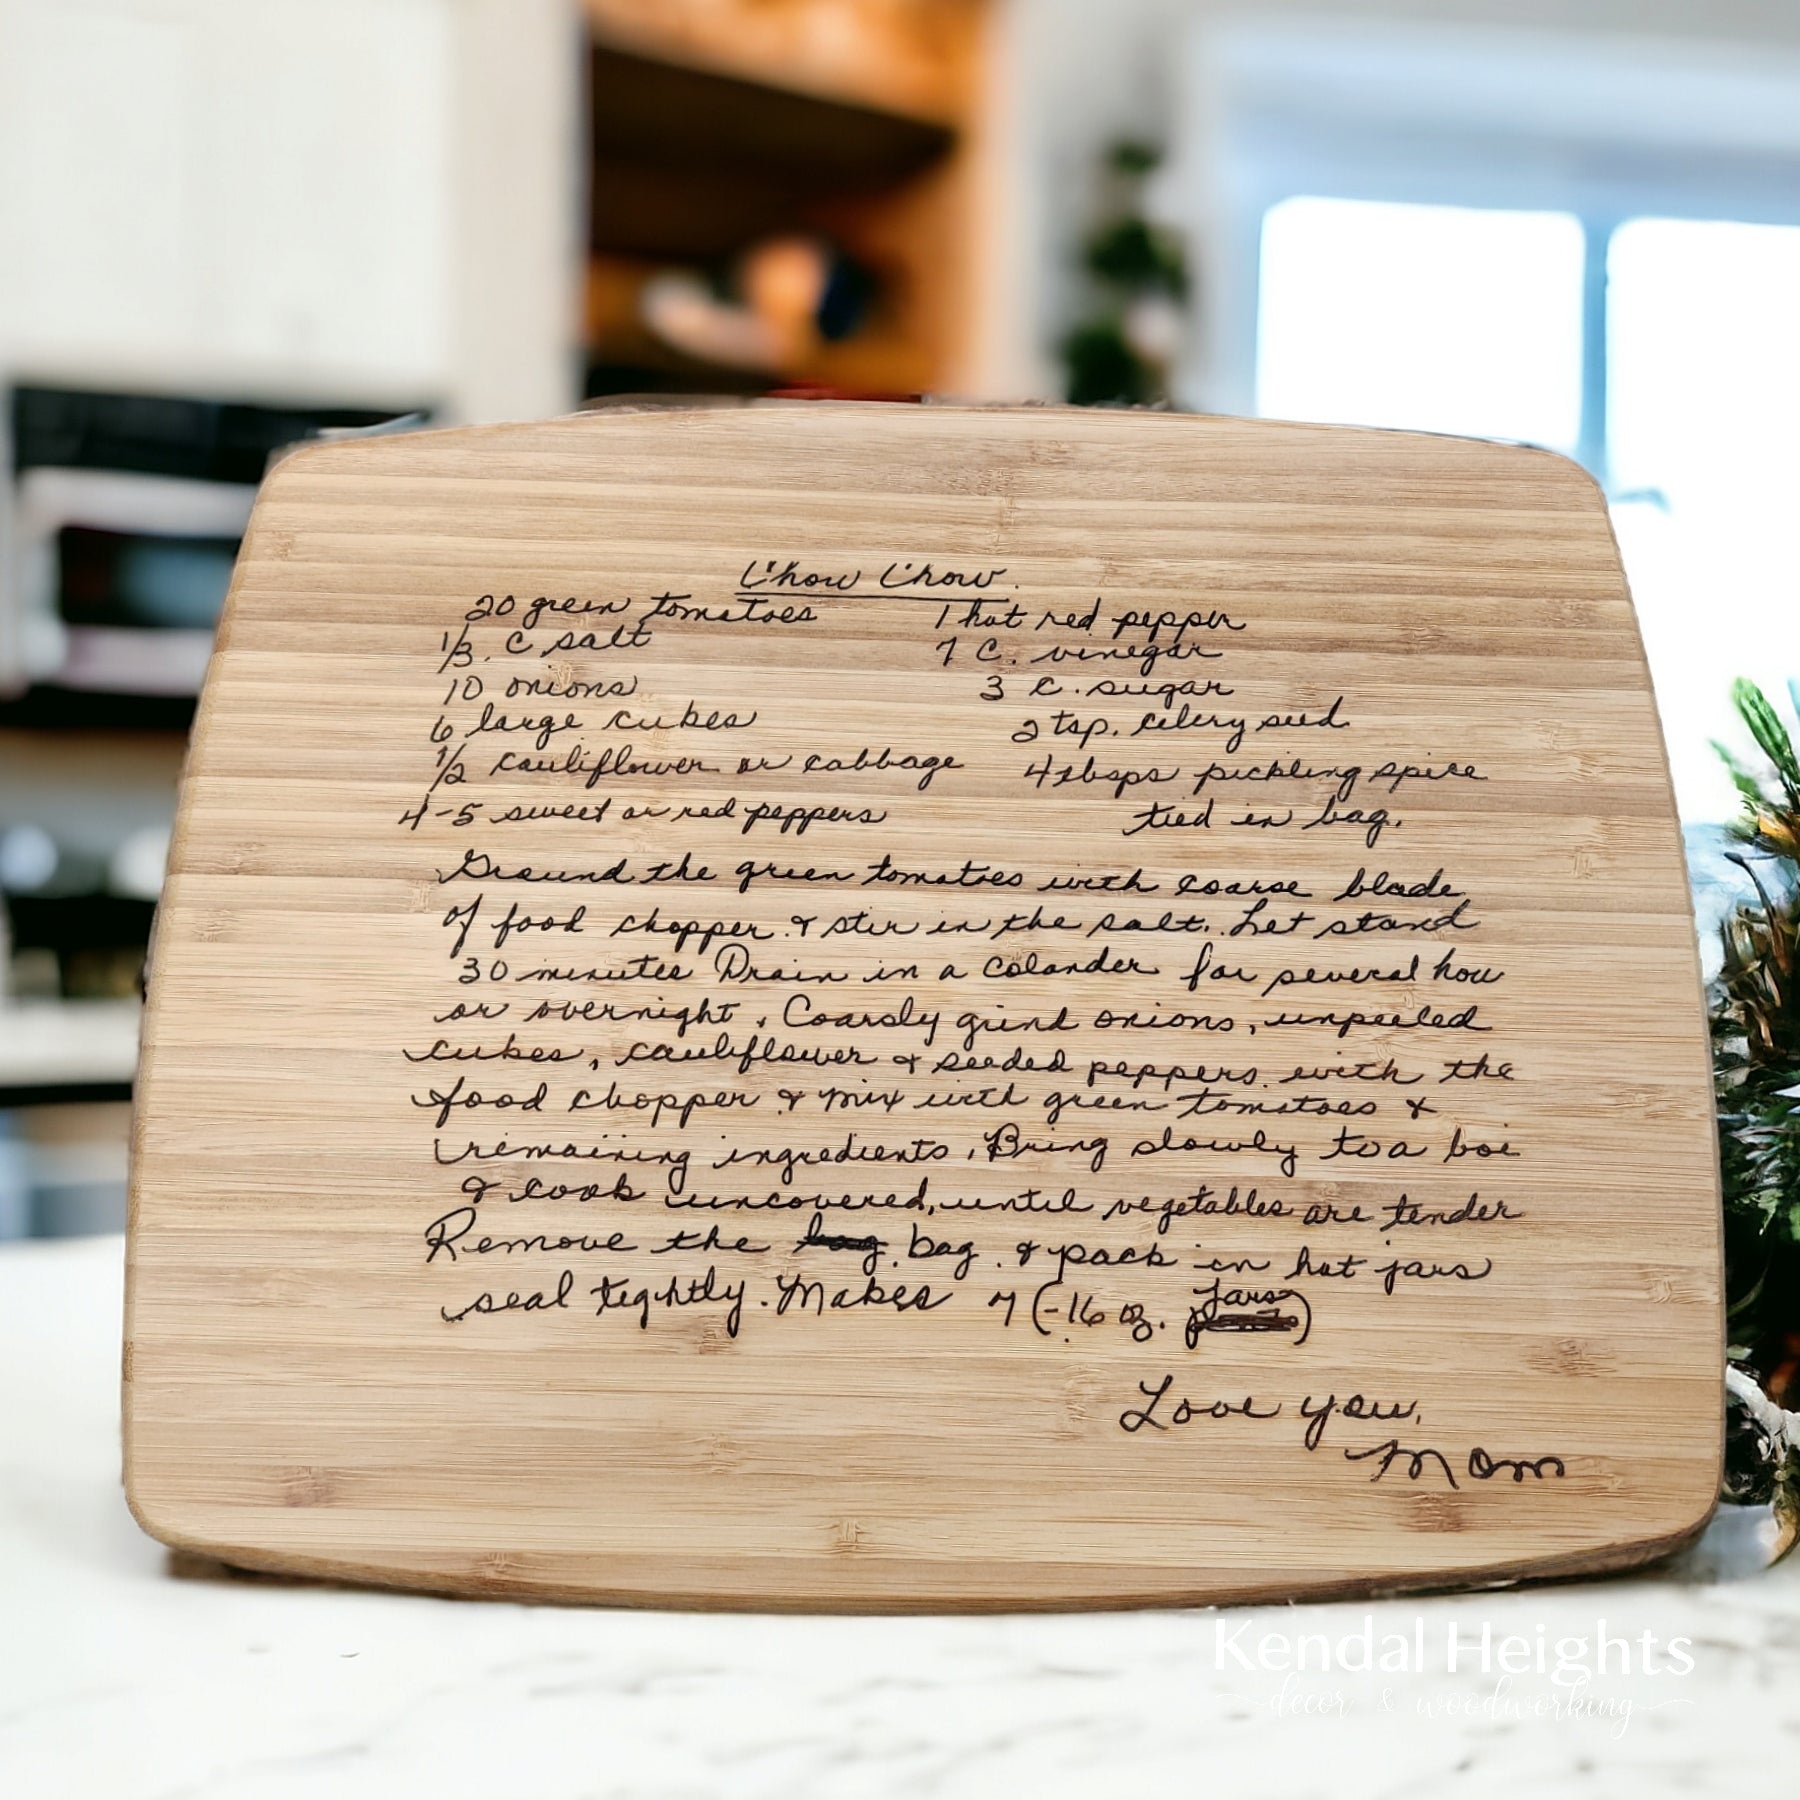 Chow Chow.
20 green tomatoes
1/3. C salt
10 onions
6 large cukes
1/2 cauliflower or cabbage
4-5 sweet or red peppers
1 hot red pepper
7 C. vinegar
3 C. sugar
2 tsp. celery seed
4 tbsps pickling spice
tied in bag.
Ground the green tomatoes with coarse blade
of food chopper & stir in the salt. Let stand
30 minutes Drain in a colander for several hou
or overnight. Coarsly grind onions, unpeeled
cukes, cauliflower & seeded peppers with the
food chopper & mix with green tomatoes &
remaining ingredients. Bring slowly to a boi
& cook uncovered, until vegetables are tender
Remove the bag bag. & pack in hot jars
seal tightly. Makes 7 (-16 oz. Jars)
Love you,
Mom
Kendal Heights
decor & woodworking